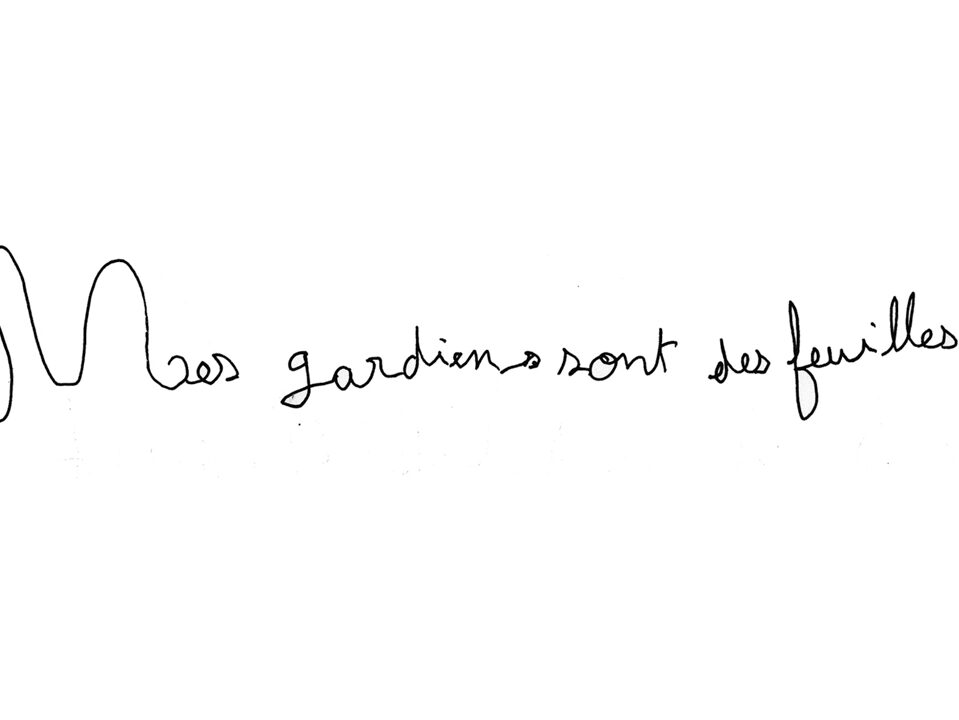 Mes gardiens sont des feuilles